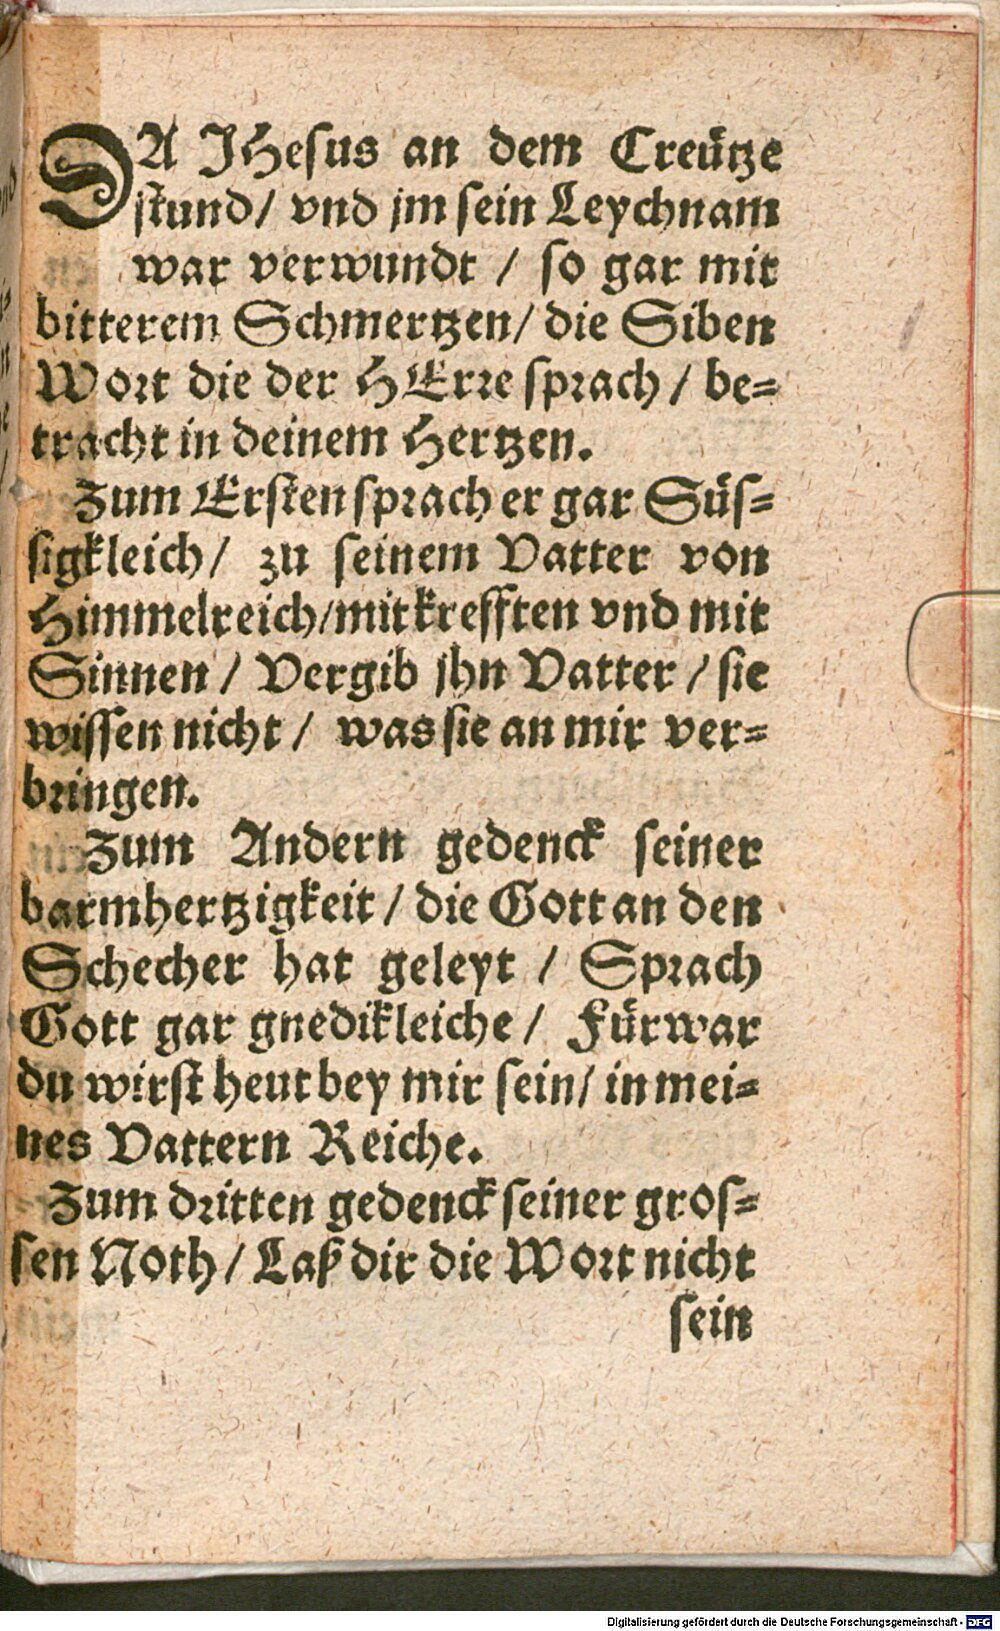 DA JHesus an dem Creütze
stund/ vnd jm sein Leychnam
war verwundt / so gar mit
bitterem Schmertzen/ die Siben
Wort die der HErre sprach / be=
tracht in deinem Hertzen.
Zum Ersten sprach er gar Süs=
sigkleich/ zu seinem Vatter von
Himmelreich/mit krefften vnd mit
Sinnen / Vergib jhn Vatter / sie
wissen nicht / was sie an mir ver=
bringen.
Zum Andern gedenck seiner
barmhertzigkeit / die Gott an den
Schecher hat geleyt / Sprach
Gott gar gnedikleiche / Fürwar
du wirst heut bey mir sein/ in mei=
nes Vattern Reiche.
Zum dritten gedenck seiner gros=
sen Noth / Laß dir die Wort nicht
sein
Digitalisierung gefördert durch die Deutsche Forschungsgemeinschaft - DFG